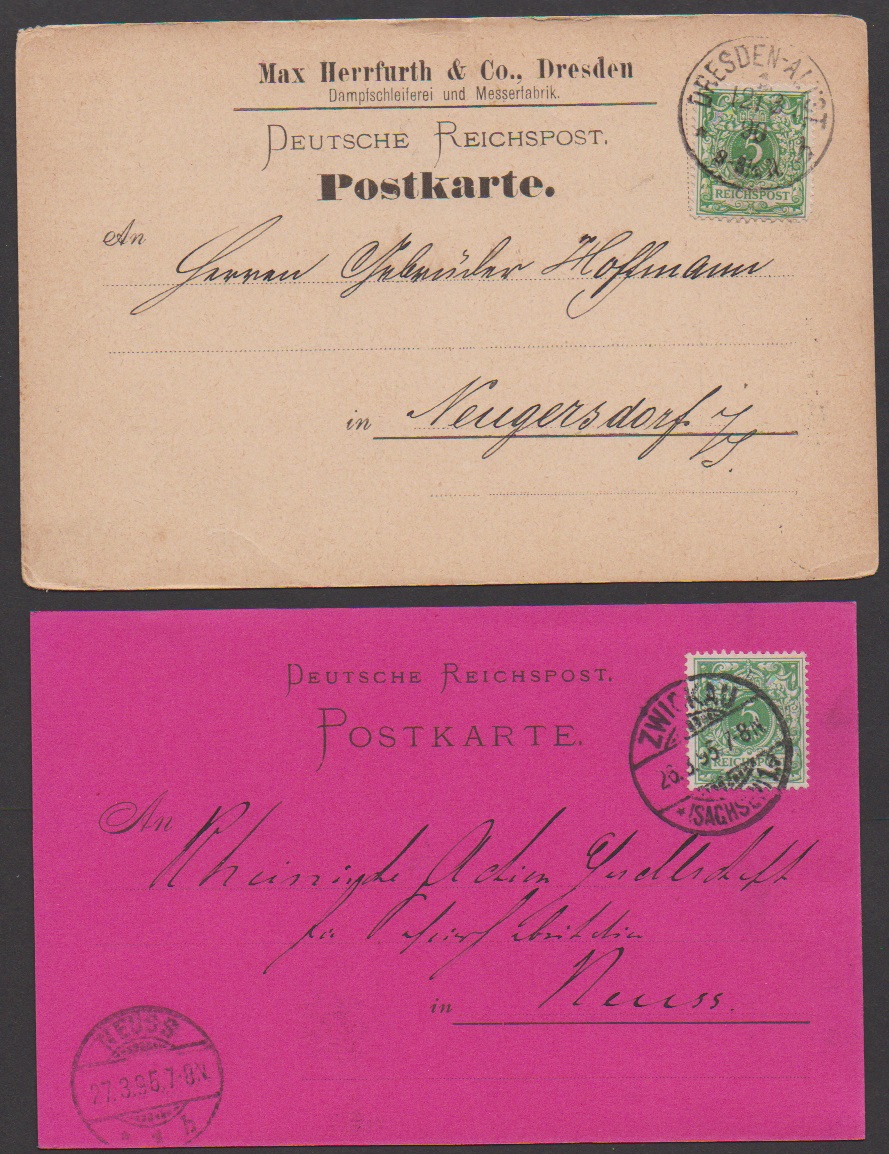 Max Herrfurth & Co., Dresden
Dampfschleiferei und Messerfabrik.
DEUTSCHE REICHSPOST.
Postkarte.
DRESDEN-ALTST
5
REICHSPOST
An
Herren Gebrüder Hoffmann
in Neugersdorf i/S.
DEUTSCHE REICHSPOST.
POSTKARTE.
ZWICKAU
26.3.95.7-8.N
(SACHSEN)
5
REICHSPOST
An
Rheinische Actien Gesellschaft
für
in Neuss.
NEUSS
27.3.95.7-8.N